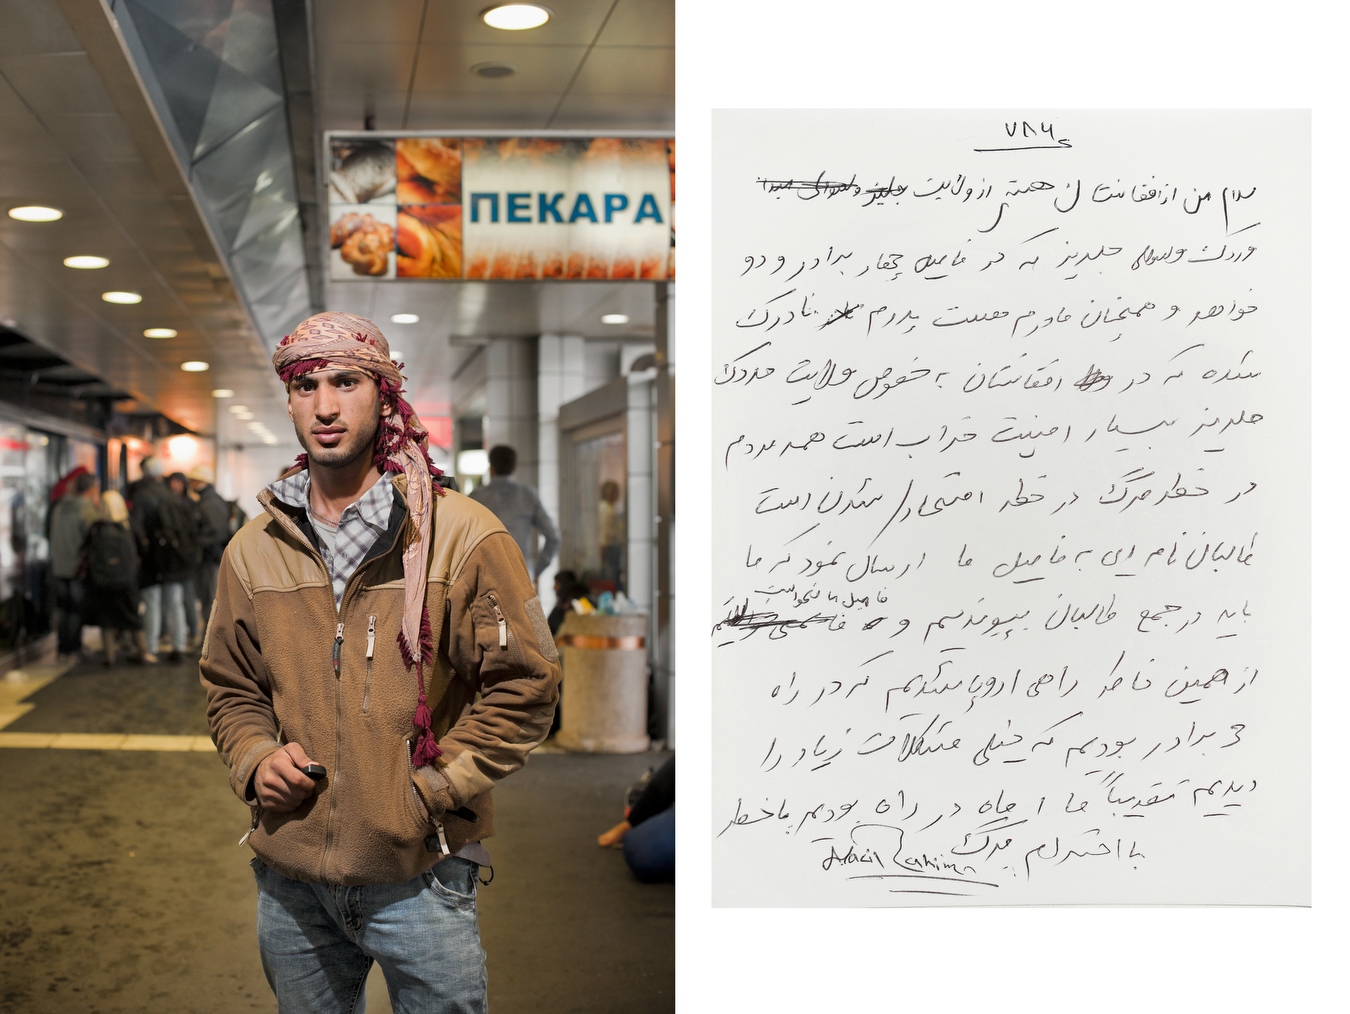 ПЕКАРА
۷۸۶
سلام من از افغانستان هستم از ولایت
وردک ولسوالی جلریز که در فامیل چهار برادر و دو
خواهر و همچنان مادرم هست پدرم نادرک
شده که در افغانستان به خصوص ولایت وردک
جلریز بسیار امنیت خراب است همه مردم
در خطر مرگ در خطر شدن است
طالبان نامه ای به فامیل ما ارسال نمود که ما
باید در جمع طالبان بپیوندیم و فامیل ما نخواست
از همین خاطر راهی اروپا شدیم که در راه
3 برادر بودیم که خیلی مشکلات زیاد را
دیدیم تقریباً ما ۱ ماه در راه بودیم با خطر
مرگ
با احترام